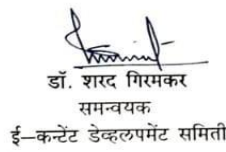 डॉ. शरद गिरमकर
समन्वयक
ई–कन्टेंट डेव्हलपमेंट समिती